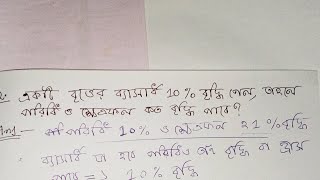 2. একটি বৃত্তের ব্যাসার্ধ 10% বৃদ্ধি পেল, তাহলে
পরিধি ও ক্ষেত্রফল কত বৃদ্ধি পাবে?
Ans - পরিধি 10% ও ক্ষেত্রফল 21% বৃদ্ধি
ব্যাসার্ধ যা হবে পরিধিও তাই বৃদ্ধি বা হ্রাস
পাবে = 10% বৃদ্ধি